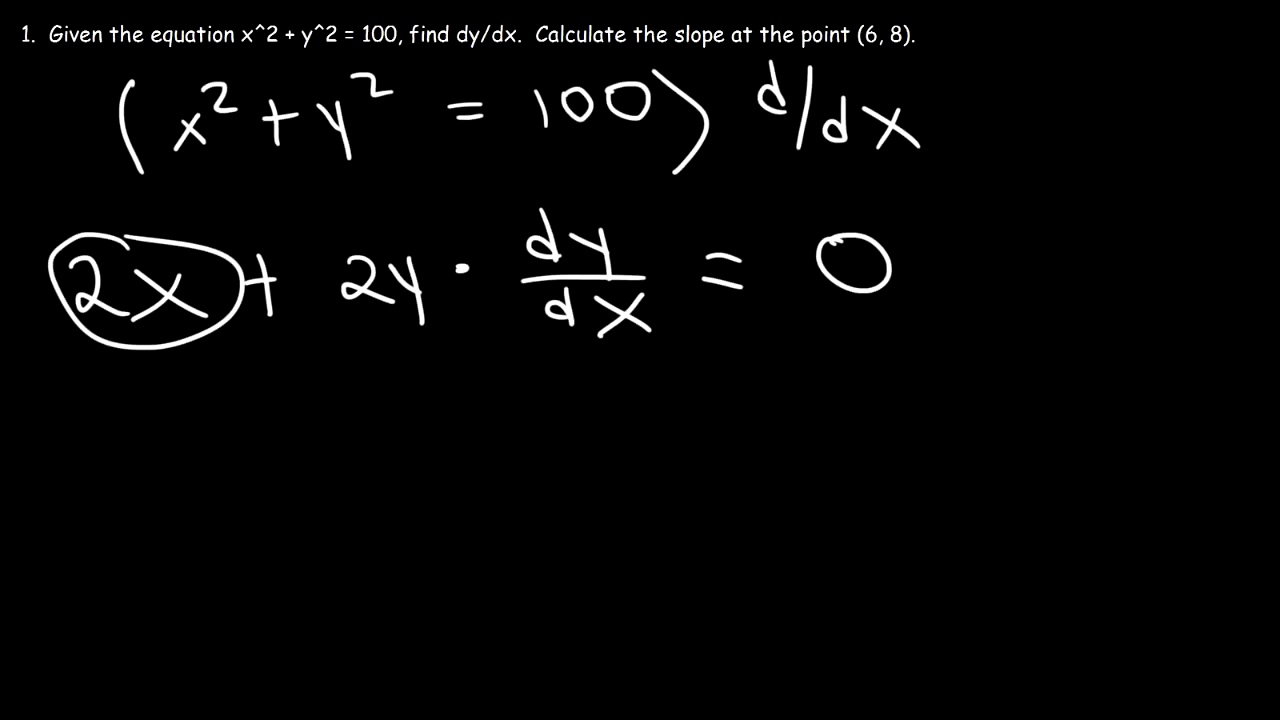 1. Given the equation x^2 + y^2 = 100, find dy/dx. Calculate the slope at the point (6, 8).
(x² + y² = 100) d/dx
2x + 2y · dy/dx = 0